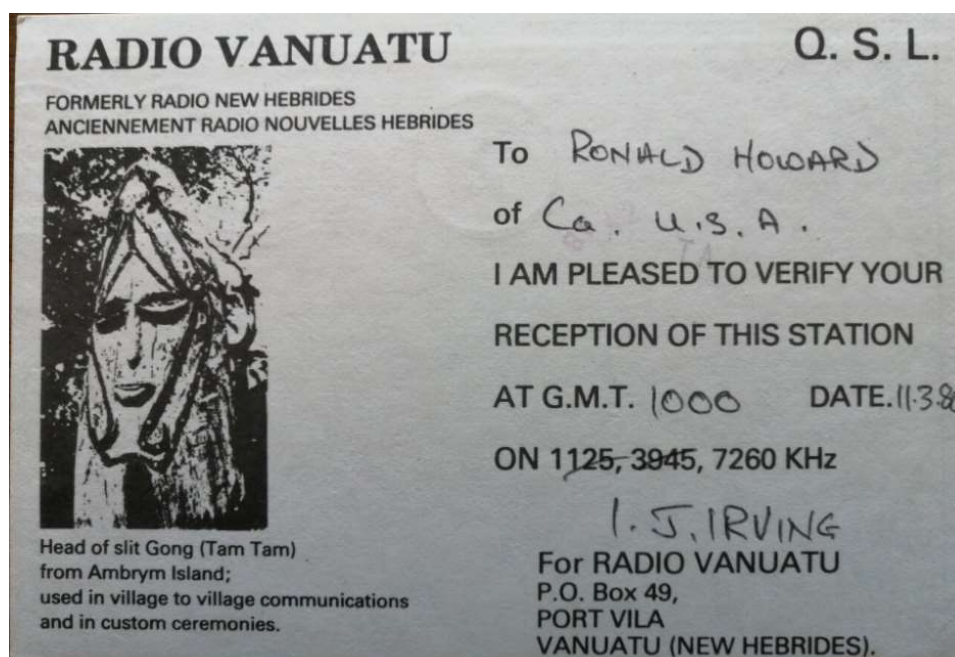 RADIO VANUATU
FORMERLY RADIO NEW HEBRIDES
ANCIENNEMENT RADIO NOUVELLES HEBRIDES
Head of slit Gong (Tam Tam)
from Ambrym Island;
used in village to village communications
and in custom ceremonies.
Q. S. L.
To RONALD HOWARD
of Ca. U.S.A.
I AM PLEASED TO VERIFY YOUR
RECEPTION OF THIS STATION
AT G.M.T. 1000 DATE. 11.3.
ON 1125, 3945, 7260 KHz
I. J. IRVING
For RADIO VANUATU
P.O. Box 49,
PORT VILA
VANUATU (NEW HEBRIDES).